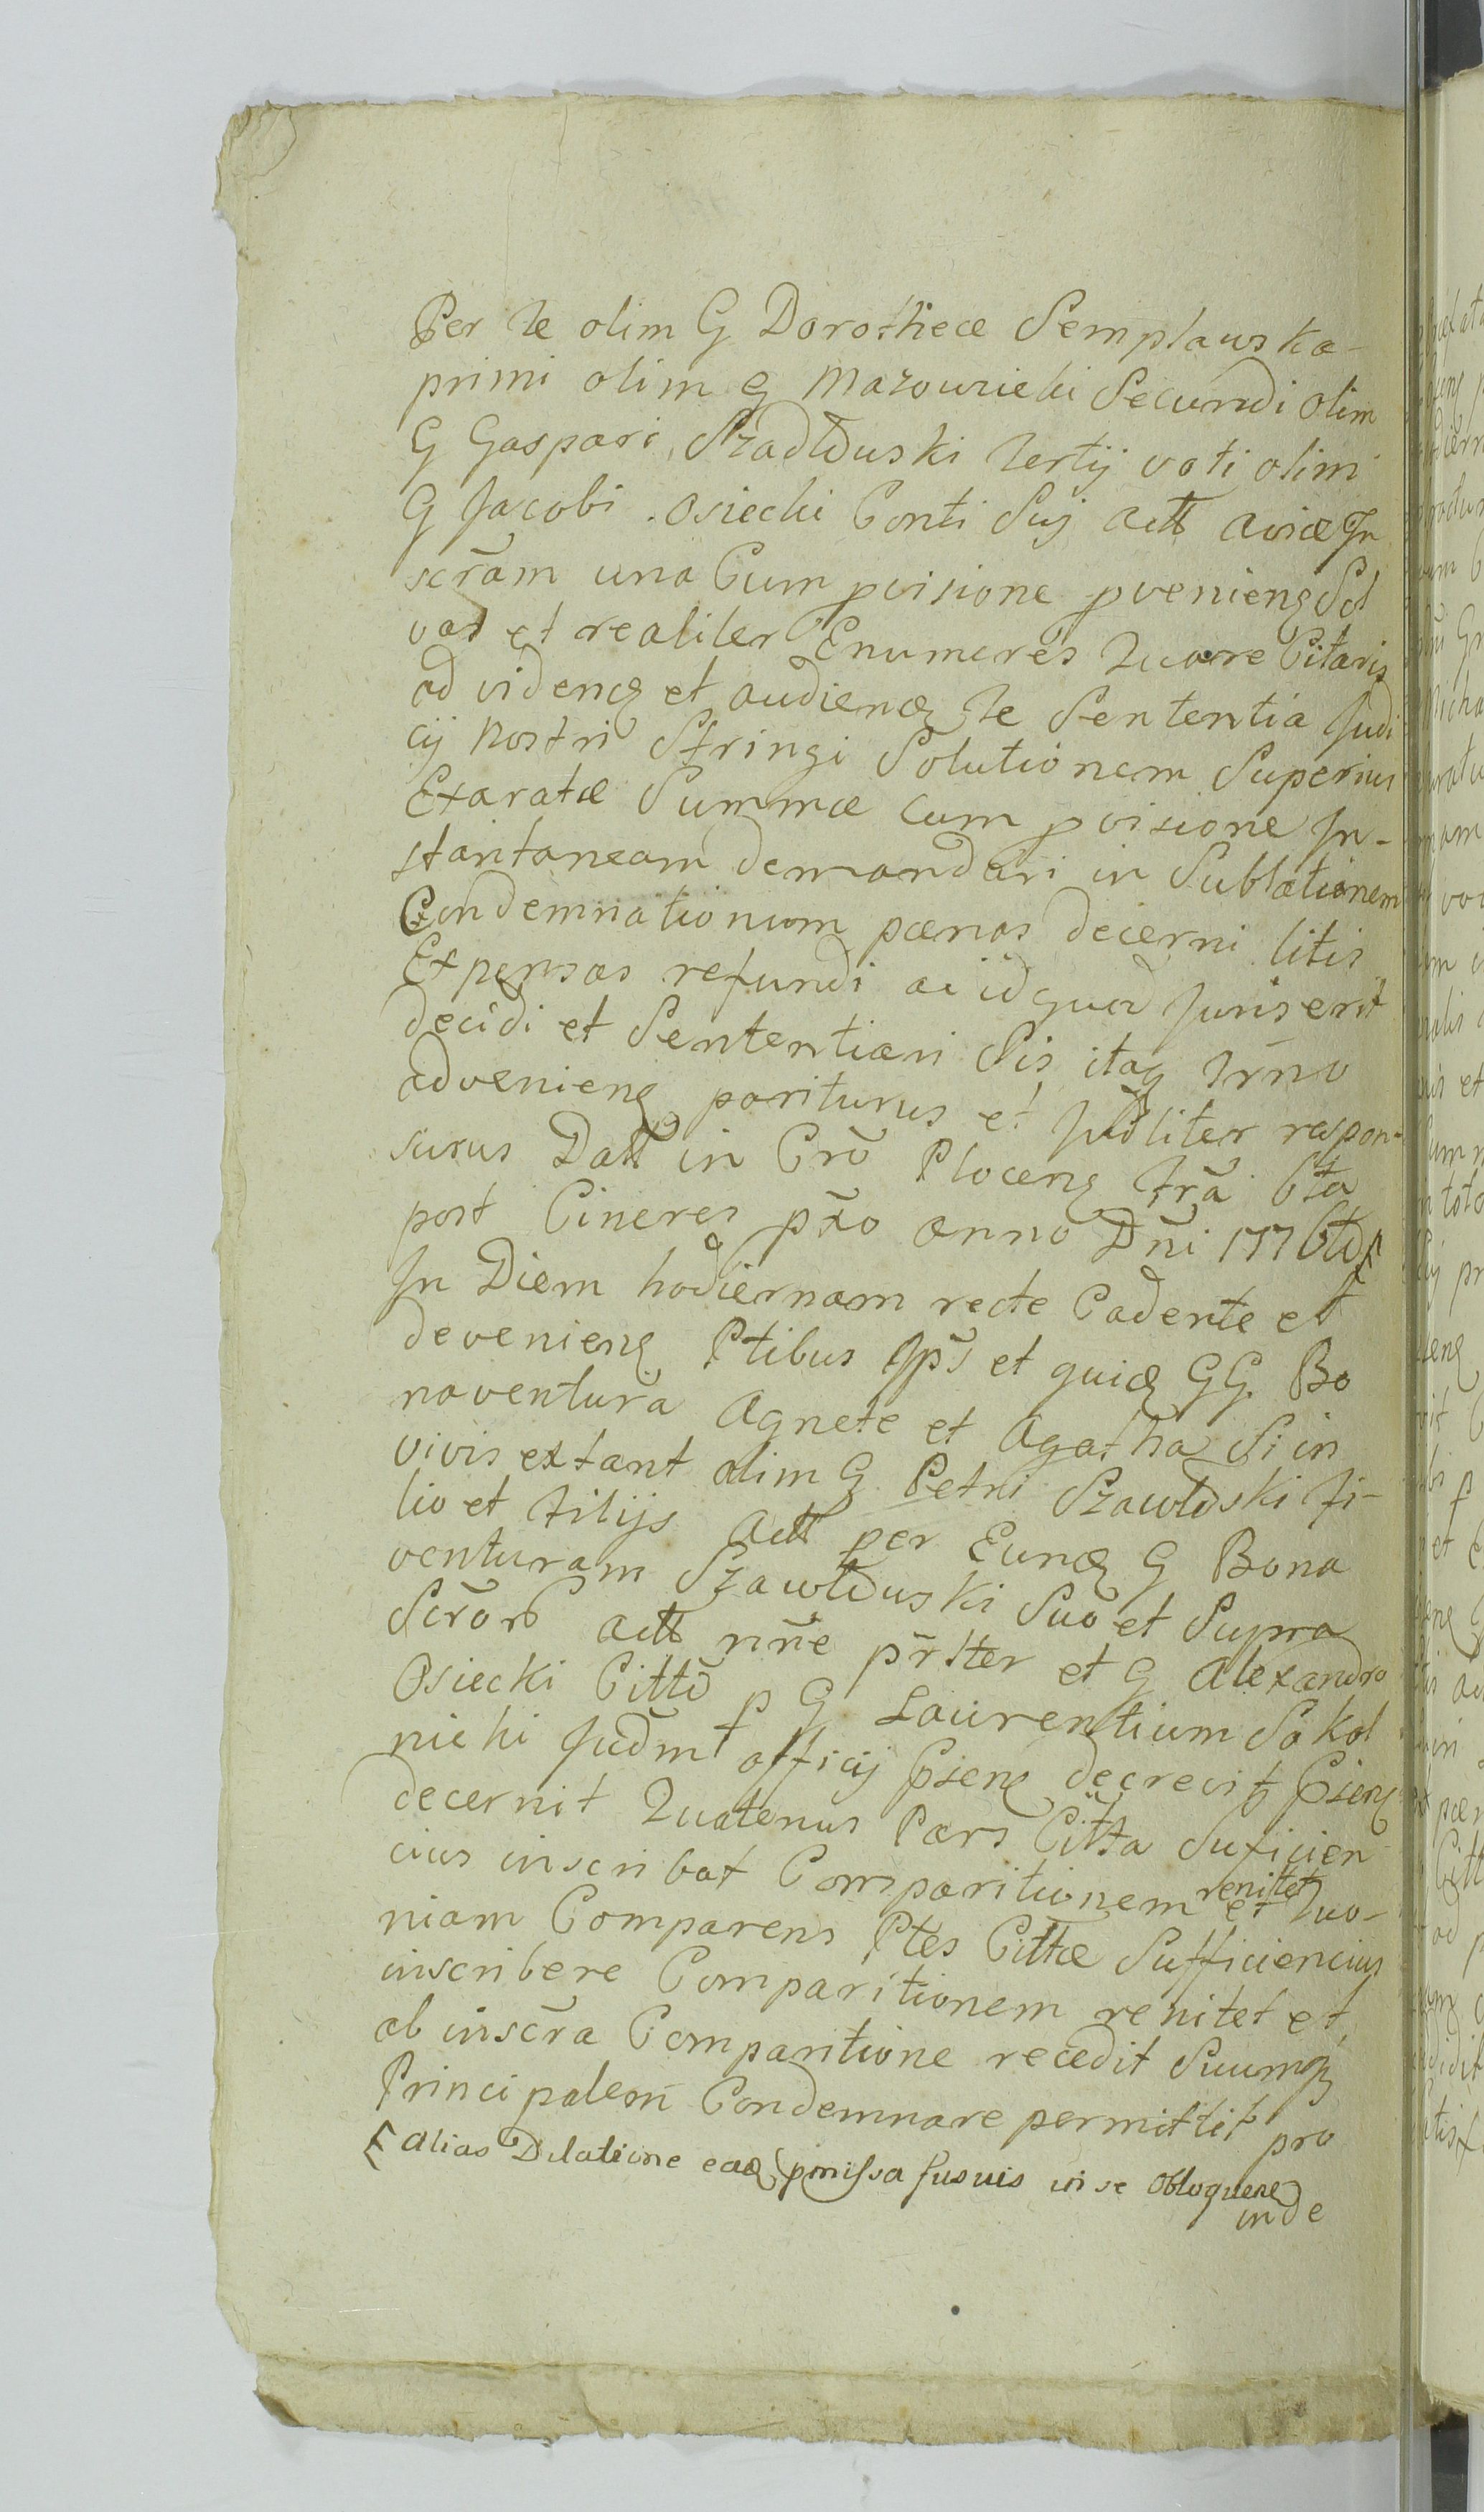 Per te olim G Dorotheæ Semplawska
primi olim G Mazowiecki Secundi olim
G Gaspari Szadłowski tertij voti olim
G Jacobi Osiecki Conti Suj actt aviæ In
scr̄am una Cum pvisione pvenieng Sol
vas et realiter Enumeres Quare Citaris
ad videng et audieng te Sententia Judi
cij Nostri Stringi Solutionem Superius
Exaratæ Summæ Cum pvisione In-
stantaneam demandari in Sublationem
Condemnationum pænas decerni litis
Expensas refundi ac id quod Juris erit
decidi et Sententiari Sis itaq tr̄no
advenieng pariturus et Jud̄liter respon-
surus Datt in Cr̄o Ploceng fr̄a 6ta
post Cineres px̄o anno Dn̄i 1776to
In Diem hodiernam recte Cadente et
devenieng Ptibus Ip̄s et quia GG Bo
naventura Agnete et Agatha Si in
vivis extant olim G Petri Szawłowski fi-
lio et filijs actt per Eung G Bona
venturam Szawłowski Suo et Supra
Scr̄or actt nn̄e pr̄lter et G Alexandro
Osiecki Citto p G Laurentium Sokol
nicki Jud̄m officij Psens decrevit Psens
decernit Quatenus Pars Citta Suficien
cius inscribat Comparitionem renitet et Quo-
niam Comparens Ptes Cittæ Sufficiencius
inscribere Comparitionem renitet et
ab inscr̄a Comparitione recedit Suumq
Principalem Condemnare permittit pro
alias Dilatione eaq pmissa inse obloquene
inde